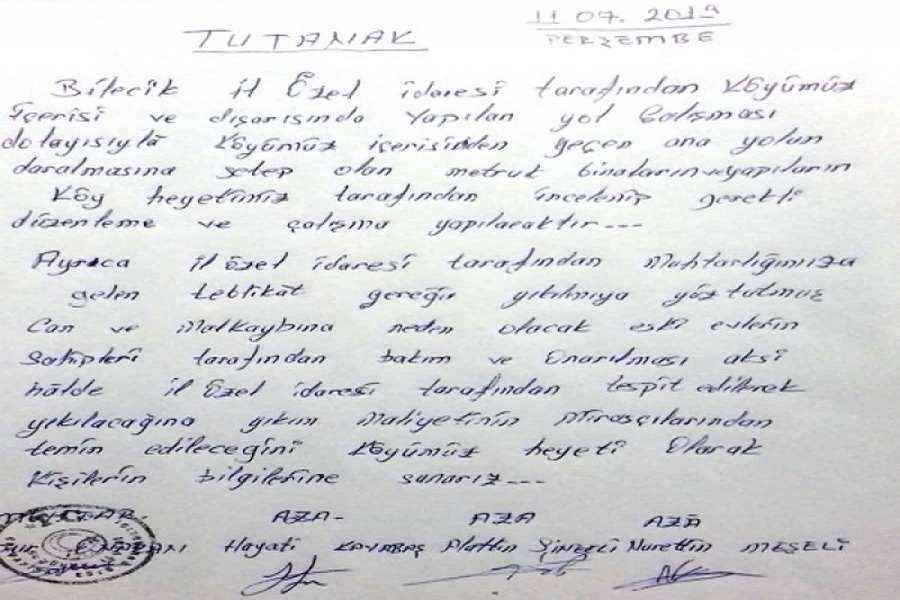 11 07. 2019
TUTANAK
PERŞEMBE
Bilecik il Özel idaresi tarafından Köyümüz
içerisi ve dışarısında Yapılan yol Çalışması
dolayısıyla Köyümüz içerisinden geçen ana yolun
daralmasına sebep olan metruk binaların ve yapıların
Köy heyetimiz tarafından incelenip gerekli
düzenleme ve çalışma yapılacaktır---
Ayrıca il özel idaresi tarafından Muhtarlığımıza
gelen teblikat gereği yıkılmıya yüz tutmuş
Can ve Malkaybına neden olacak eski evlerin
Sahipleri tarafından bakım ve Onarılması aksi
hâlde il Özel idaresi tarafından tespit edilerek
yıkılacağına yıkım Maliyetinin Mirasçılarından
temin edileceğini Köyümüz heyeti Olarak
Kişilerin bilgilerine sunarız---
MUHTAR. AZA- AZA AZA
Hayati KAYABAŞ Nurettin MEŞELİ